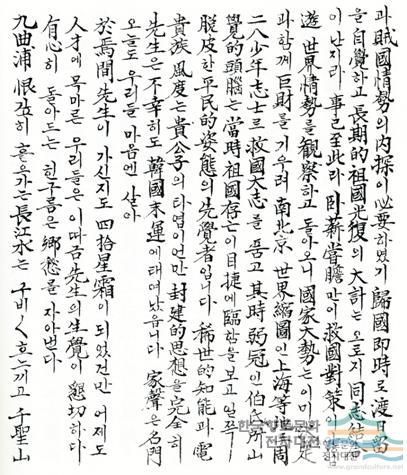 九曲浦 恨깊히 흘으가는 長江水는 구비〱 흐느끼고 千聖山
有心히 돌아드는 흰구름은 鄕愁를 자아낸다
人才에 목마른 우리들은 이따금 先生의 生覺이 懇切하다
於焉間 先生이 가신지도 四拾星霜이 되였건만 어제도
오늘도 우리들 마음엔 살아
先生은 不幸히도 韓國末運에 태여났읍니다 家聲은 名門
貴族 風度는 貴公子의 타엽이언만 封建的思想을 完全히
脫皮한 平民的姿態의 先覺者입니다 稀世的知能과 電
覺的頭腦는 當時 祖國存亡이 目捷에 臨함을 보고 일쯕
二八少年志士로 救國大志를 품고 其時 弱冠인 伯氏 所山
과 함께 巨財를 기우려 南北京 世界縮圖인 上海等地 周
遊 世界情勢를 觀察하고 돌아오니 國家大勢는 이미 定
이난지라 事已至此라 臥薪嘗膽만이 救國對策이
을 自覺하고 長期的 祖國光復의 大計는 오로지 同志結
과 賊國情勢의 內探이 必要하였기 歸國卽時로 渡日 留